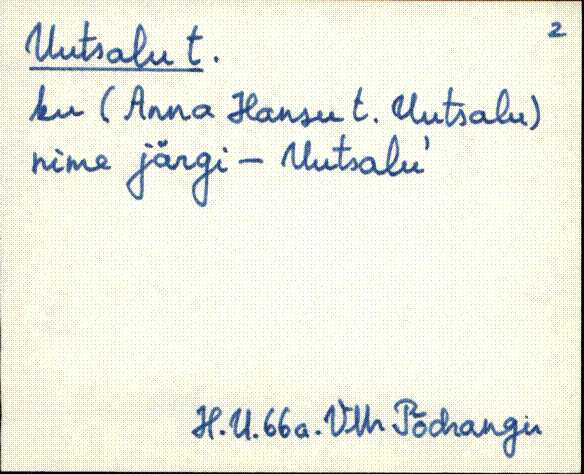 2
Uutsalu t.
ku (Anna Hansu t. Uutsalu)
nime järgi – Uutsalu'
H.U. 66a. VMr Põdrangu